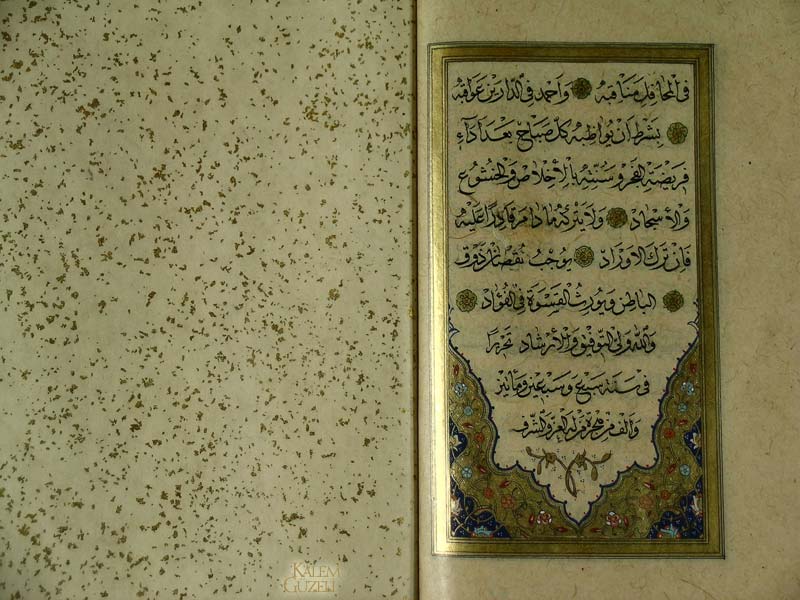 في المحافل مناقبه واحمد في الدارين عواقبه
بشرط ان يواظبه كل صباح بعد اداء
فريضة الفجر وسنته بالاخلاص والخشوع
والاسجاد ولا يتركه ما دام قادرا عليه
فان ترك الاوراد يوجب نقصان ذوق
الباطن ويورث القسوة في الفؤاد
والله ولي التوفيق والارشاد تحريرا
في سنة سبع وسبعين ومأتين
والف من هجرة من له العز والشرف
KALEM
GÜZELİ